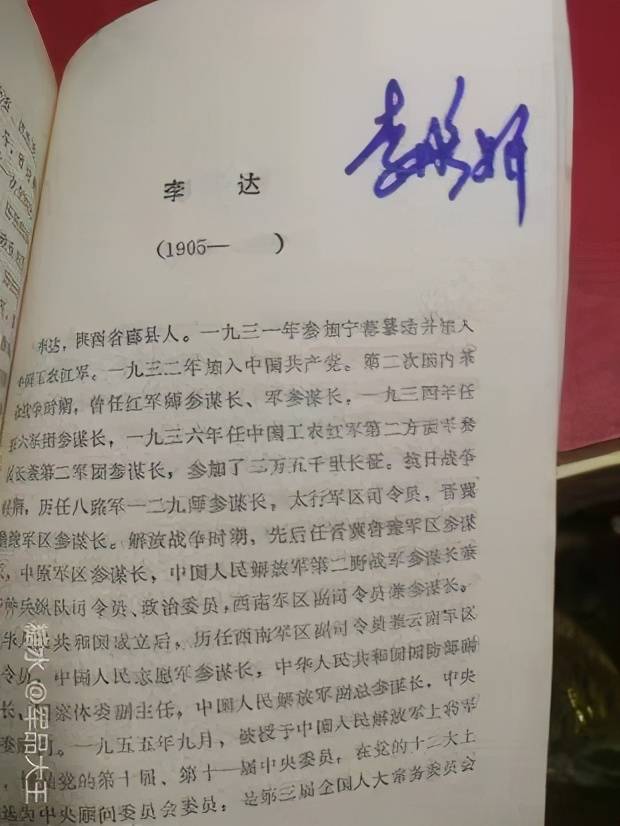 李 达
(1905— )
李达，陕西省眉县人。一九三一年参加宁都暴动并加入
中国工农红军。一九三二年加入中国共产党。第二次国内革
命战争时期，曾任红军师参谋长、军参谋长，一九三四年任
红六军团参谋长，一九三六年任中国工农红军第二方面军参
谋长兼第二军团参谋长，参加了二万五千里长征。抗日战争
时期，历任八路军一二九师参谋长，太行军区司令员，晋冀
鲁豫军区参谋长。解放战争时期，先后任晋冀鲁豫军区参谋
长，中原军区参谋长，中国人民解放军第二野战军参谋长兼
特种兵纵队司令员、政治委员，西南军区副司令员兼参谋长。
中华人民共和国成立后，历任西南军区副司令员兼云南军区
司令员，中国人民志愿军参谋长，中华人民共和国国防部副
部长，国家体委副主任，中国人民解放军副总参谋长，中央
军委顾问。一九五五年九月，被授于中国人民解放军上将军
衔。是党的第十届、第十一届中央委员，在党的十二大上
当选为中央顾问委员会委员；是第三届全国人大常务委员会
@军品大王